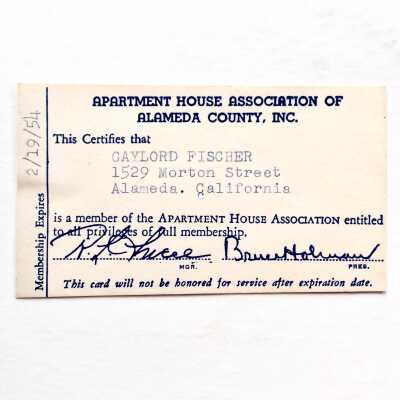 APARTMENT HOUSE ASSOCIATION OF
ALAMEDA COUNTY, INC.
This Certifies that
GAYLORD FISCHER
1529 Morton Street
Alameda. California
is a member of the APARTMENT HOUSE ASSOCIATION entitled
to all privileges of full membership.
Bruce Holman
MGR.
PRES.
This card will not be honored for service after expiration date.
Membership Expires 2/19/54